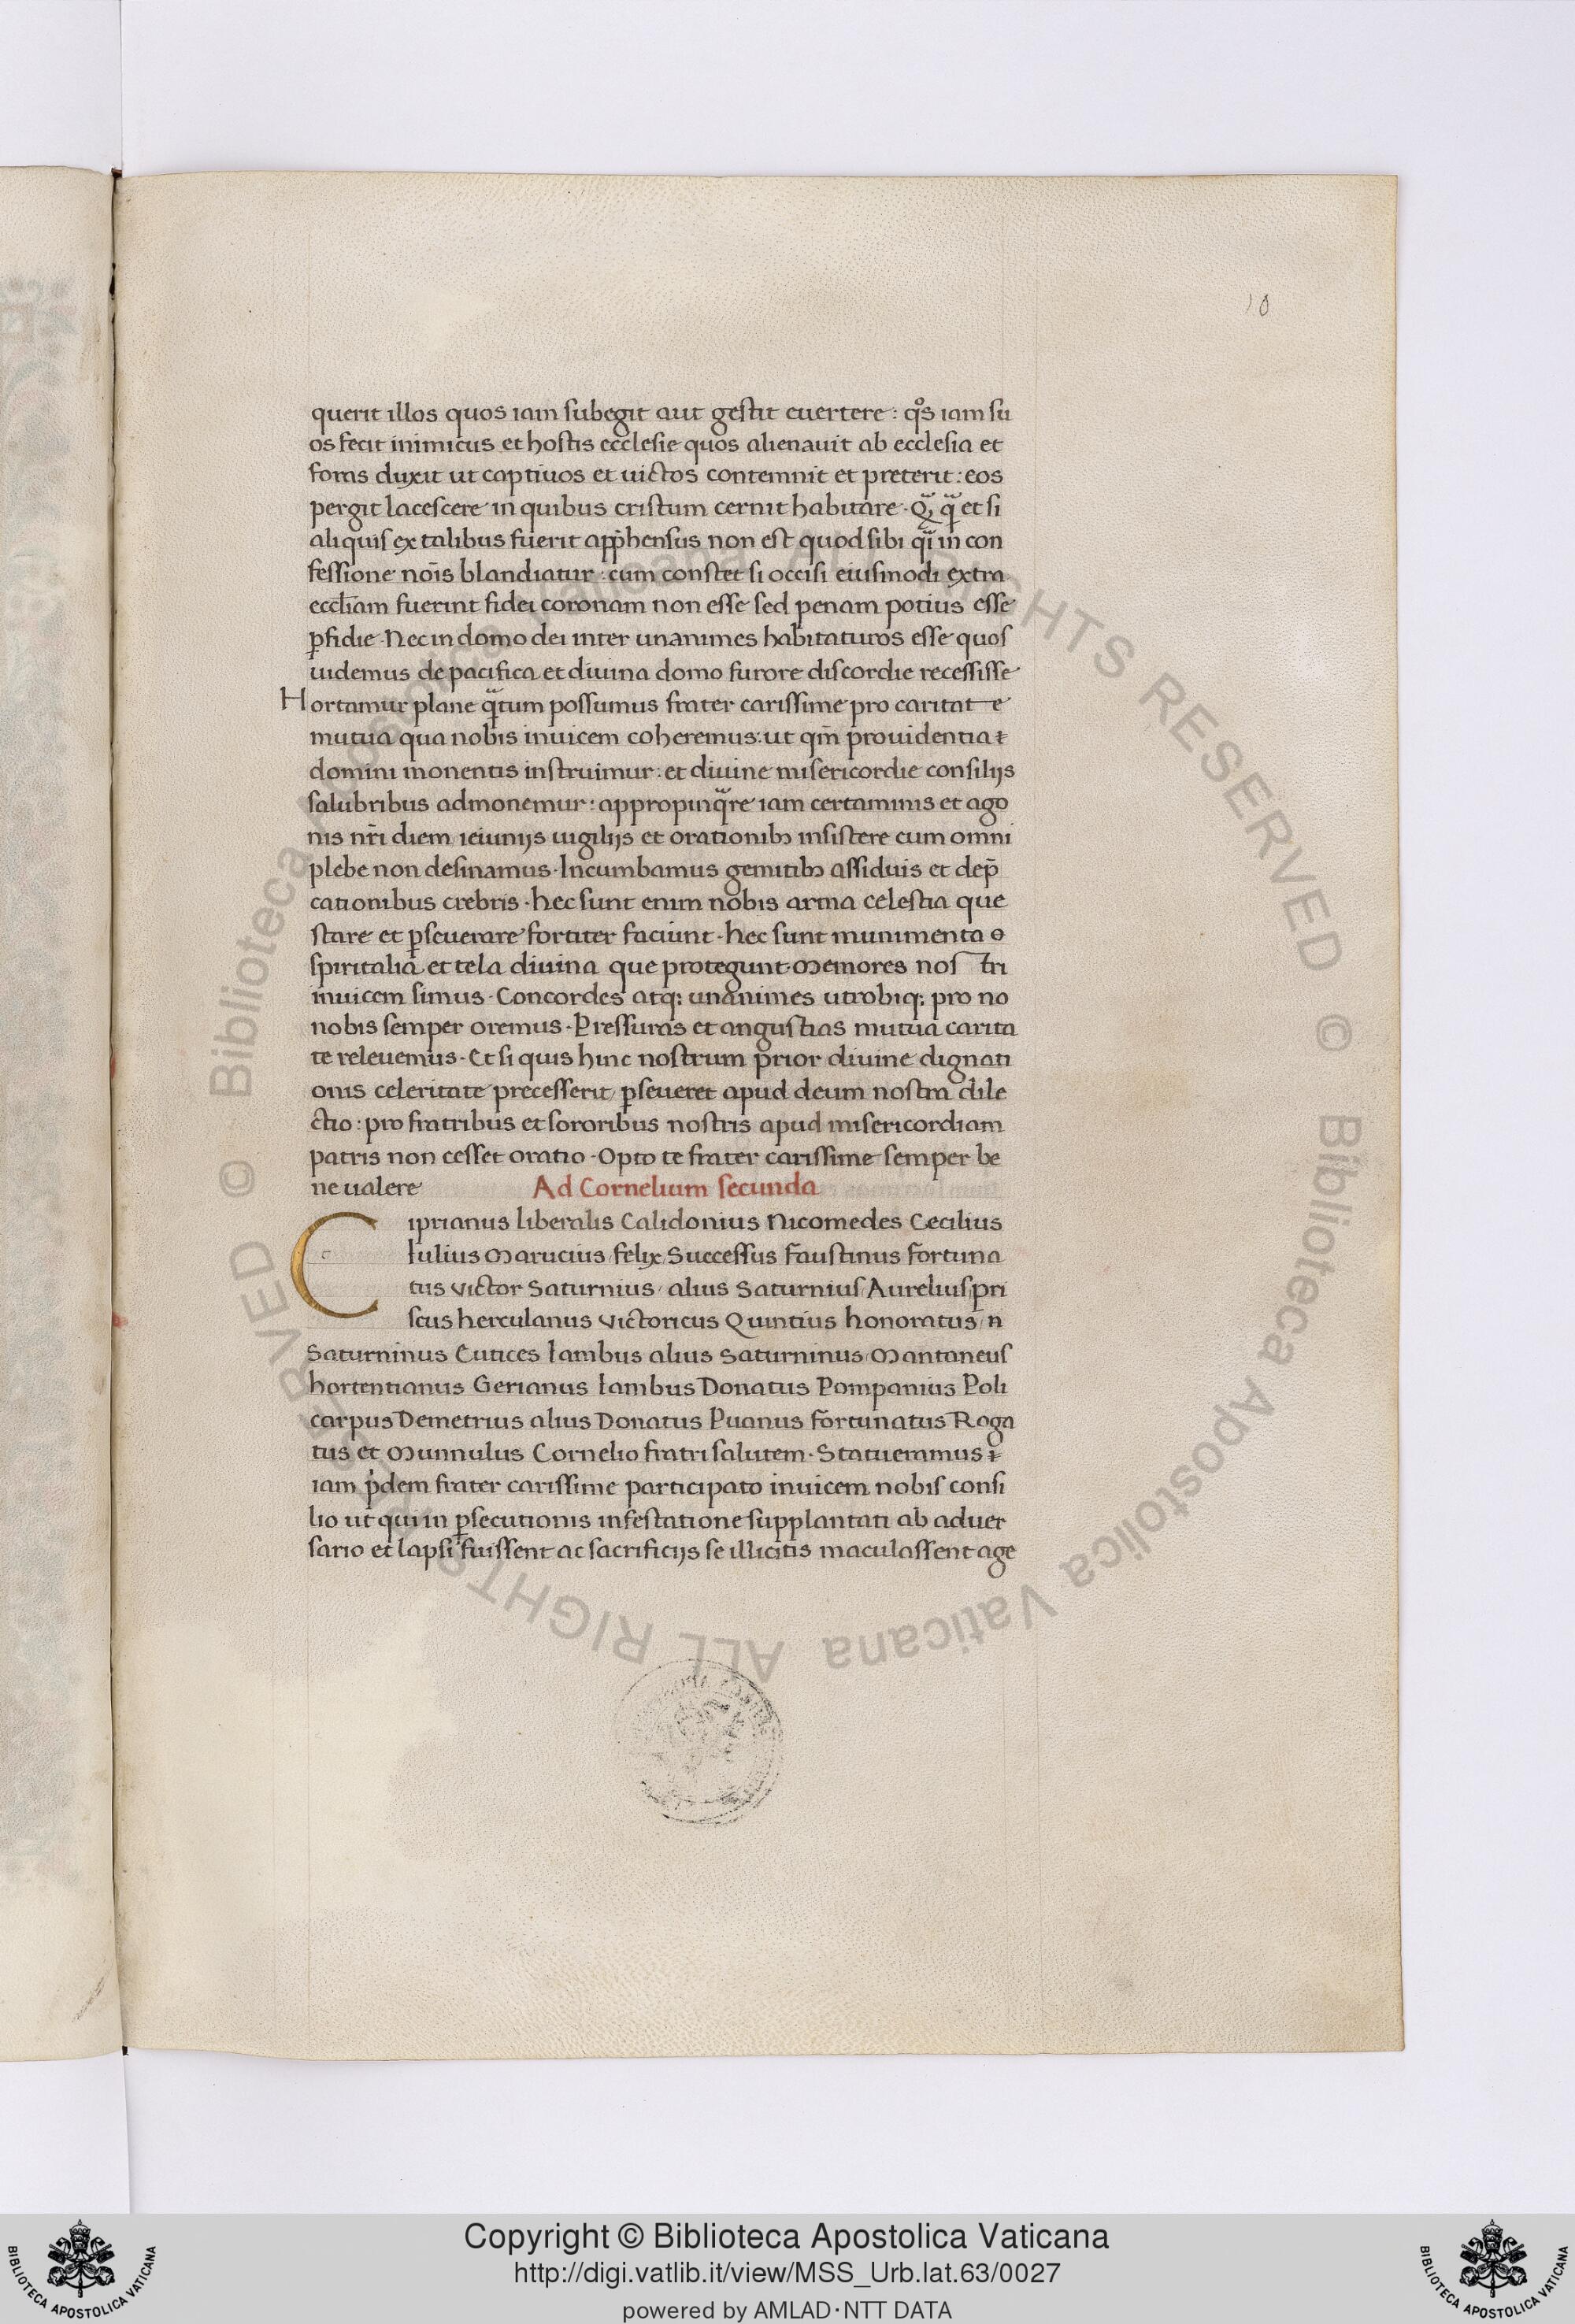 10
querit illos quos iam subegit aut gestit euertere : qͦs iam su
os fecit inimicus et hostis ecclesie quos alienauit ab ecclesia et
foras duxit ut captiuos et uictos contemnit et preterit : eos
pergit lacescere in quibus cristum cernit habitare · Qᷓ qᷓ et si
aliquis ex talibus fuerit app̄hensus non est quod sibi qᷓi in con
fessione nōis blandiatur : cum constet si occisi eiusmodi extra
eccl̄iam fuerint fidei coronam non esse sed penam potius esse
ꝑfidie · Nec in domo dei inter unanimes habitaturos esse quos
uidemus de pacifica et diuina domo furore discordie recessisse
Hortamur plane qᷓtum possumus frater carissime pro caritate
mutua qua nobis inuicem coheremus : ut qm̄ prouidentia
domini monentis instruimur : et diuine misericordie consilijs
salubribus admonemur : appropinqᷓre iam certaminis et ago
nis nr̄i diem ieiunijs uigilijs et orationibꝫ insistere cum omni
plebe non desinamus · Incumbamus gemitibꝫ assiduis et dep̄
cationibus crebris · hec sunt enim nobis arma celestia que
stare et ꝑseuerare fortiter faciunt · hec sunt munimenta
spiritalia et tela diuina que protegunt · Memores nostri
inuicem simus · Concordes atq; unanimes utrobiq; pro no
nobis semper oremus · Pressuras et angustias mutua carita
te releuemus · Et si quis hinc nostrum prior diuine dignati
onis celeritate precesserit / ꝑseueret apud deum nostra dile
ctio : pro fratribus et sororibus nostris apud misericordiam
patris non cesset oratio · Opto te frater carissime semper be
ne ualere Ad Cornelium secunda
Ciprianus liberalis Calidonius Nicomedes Cecilius
Iulius Marucius / felix / Successus Faustinus fortuna
tus Victor Saturnius / alius Saturnius / Aurelius / pri
scus herculanus Victoricus Quintius honoratus / n
Saturninus Eutices Iambus alius Saturninus / Mantaneus
hortentianus Gerianus Iambus Donatus Pompanius Poli
carpus Demetrius alius Donatus Puanus fortunatus Roga
tus et Munnulus Cornelio fratri salutem · Statueramus
iam p̍dem frater carissime participato inuicem nobis consi
lio ut qui in ꝑsecutionis infestatione supplantati ab aduer
sario et lapsi fuissent ac sacrificijs se illicitis maculassent age
© Biblioteca Apostolica Vaticana ALL RIGHTS RESERVED © Biblioteca Apostolica Vaticana ALL RIGHTS RESERVED
Copyright © Biblioteca Apostolica Vaticana
http://digi.vatlib.it/view/MSS_Urb.lat.63/0027
powered by AMLAD·NTT DATA
BIBLIOTECA APOSTOLICA VATICANA
BIBLIOTECA APOSTOLICA VATICANA